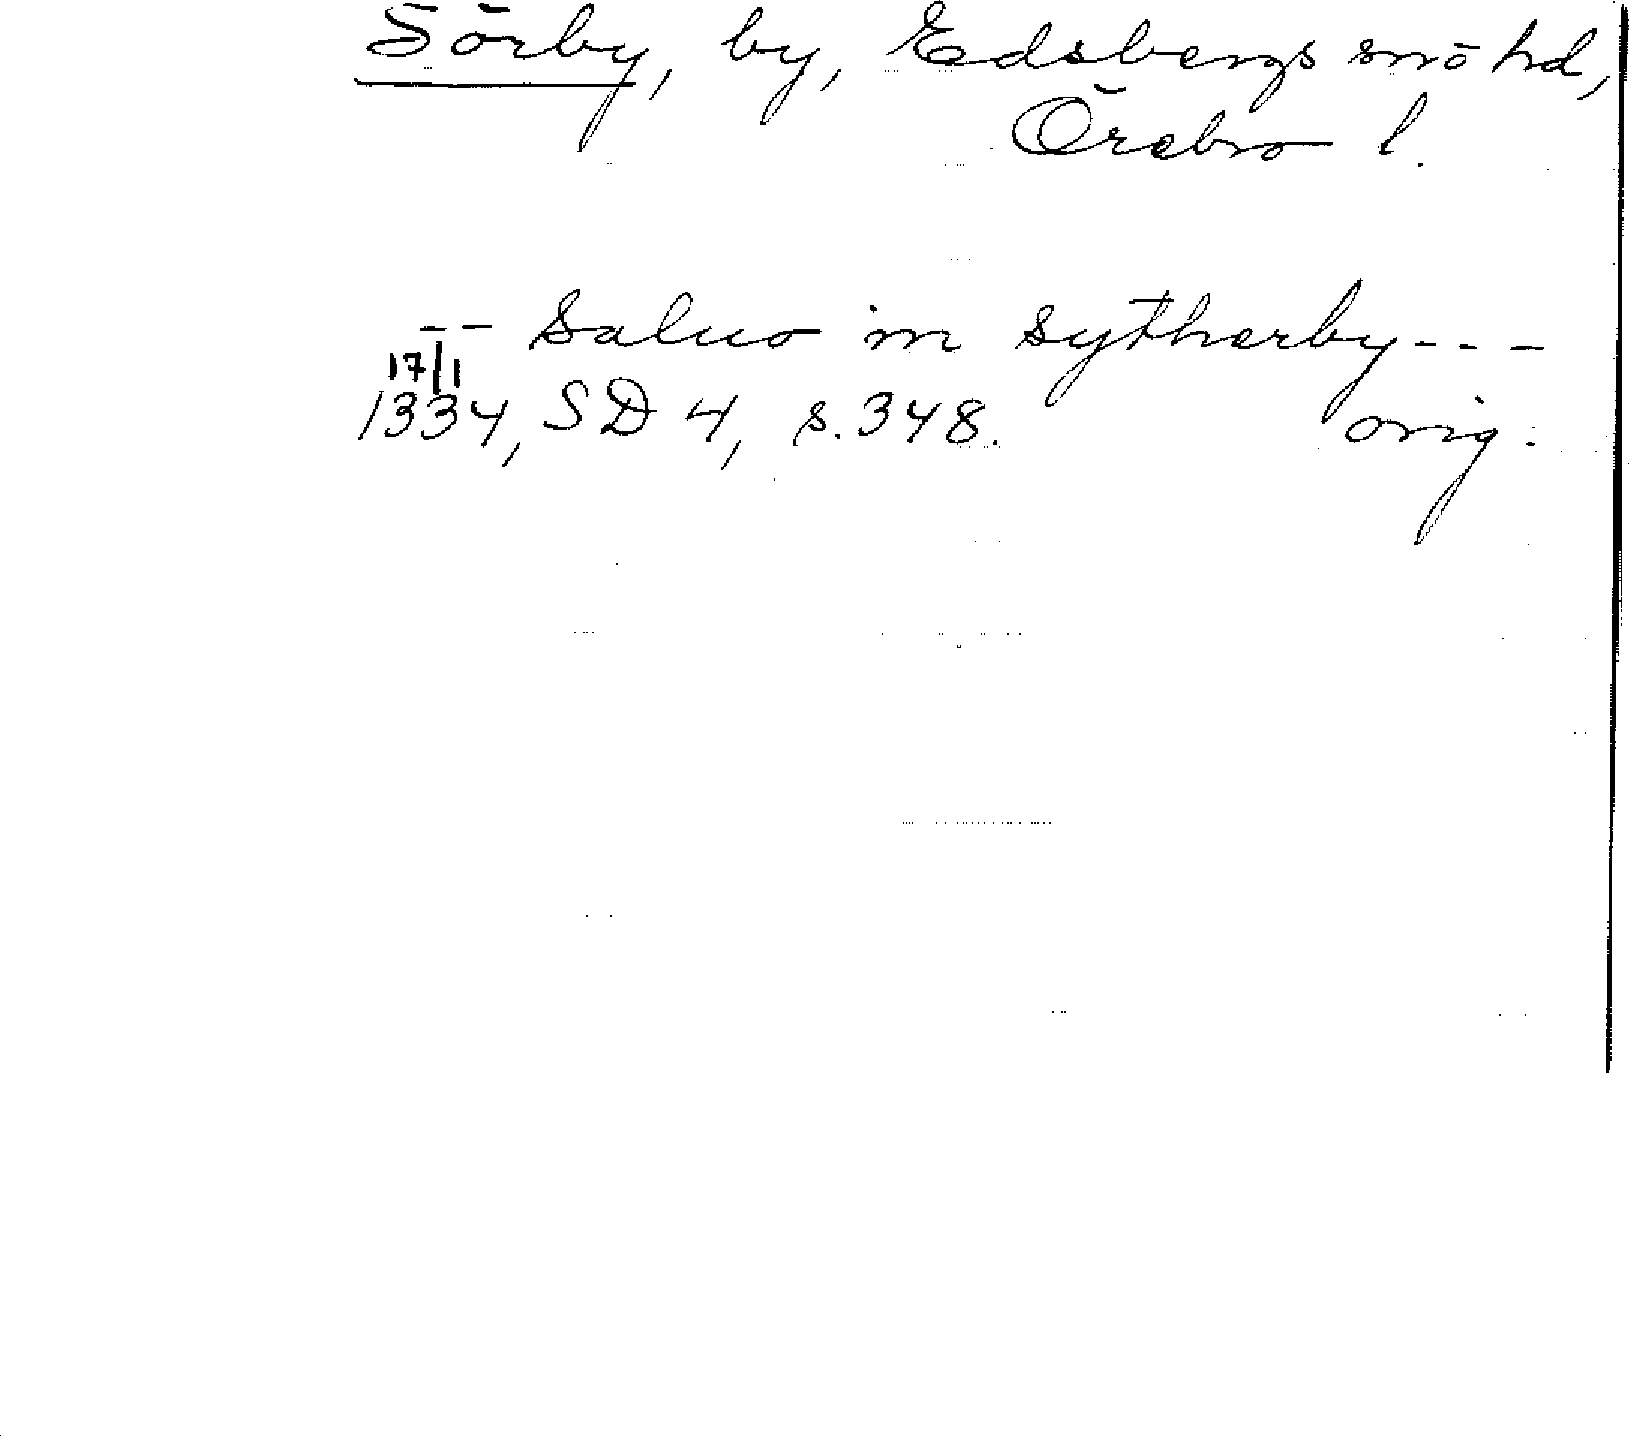 Sörby, by, Edsbergs snö hd,
Örebro l.
-- Saluo in sytherby---
17/1
1334, SD 4, s. 348. orig.